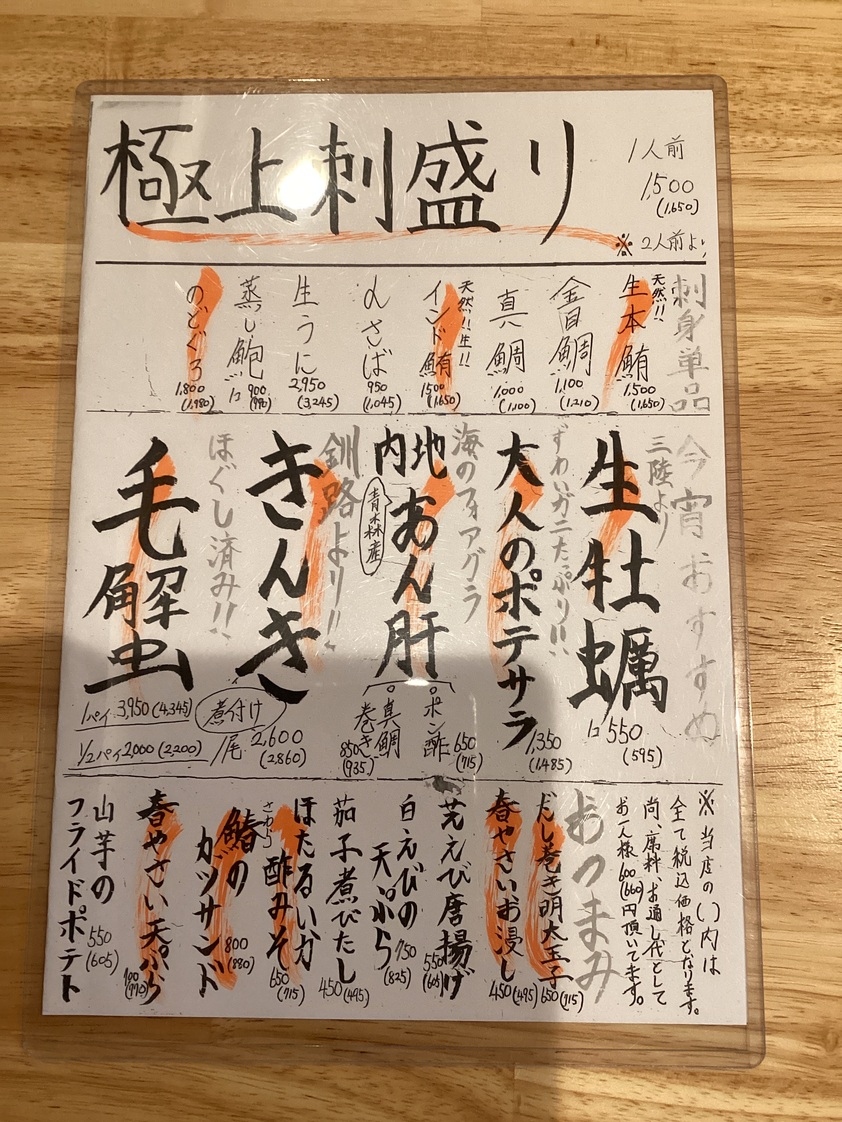 極上刺盛り
1人前
1,500
(1,650)
※2人前より
刺身単品
天然!!
生本鮪
1,500
(1,650)
金目鯛
1,100
(1,210)
真鯛
1,000
(1,100)
天然!!生!!
インド鮪
1500
(1,650)
〆さば
950
(1,045)
生うに
2,950
(3,245)
蒸し鮑
1コ 900
(990)
のどぐろ
1,800
(1,980)
今宵おすすめ
三陸より
生牡蠣
1コ 550
(595)
ずわいガニたっぷり!!
大人のポテサラ
1,350
(1,485)
海のフォアグラ
地あん肝
内
青森産
。ポン酢
650
(715)
。真鯛
巻き
850
(935)
釧路より!!
きんき
煮付け
1尾 2,600
(2,860)
ほぐし済み!!
毛蟹
1パイ 3,950(4,345)
1/2パイ 2,000(2,200)
※当店の( )内は
全て税込価格となります。
尚、席料、お通し代として
お一人様600(660)円頂いてます。
おつまみ
だし巻き明太玉子
650(715)
春やさいお浸し
450(495)
芝えび唐揚げ
550
(605)
白えびの
天ぷら
750
(825)
茄子煮びたし
450(495)
ほたるいか
酢みそ
650
(715)
さわら
鰆の
カツサンド
800
(880)
春やさい天ぷら
700
(770)
山芋の
フライドポテト
550
(605)